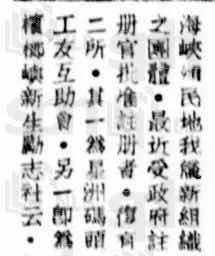 海峽殖民地我屬新組織
之團體·最近受政府註
册官批准註册者·僅有
二所·其一爲星洲碼頭
工友互助會·另一卽爲
檳榔嶼新生勵志社云·